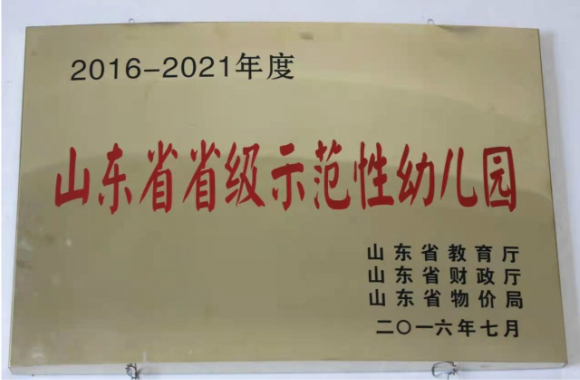 2016-2021年度
山东省省级示范性幼儿园
山东省教育厅
山东省财政厅
山东省物价局
二〇一六年七月